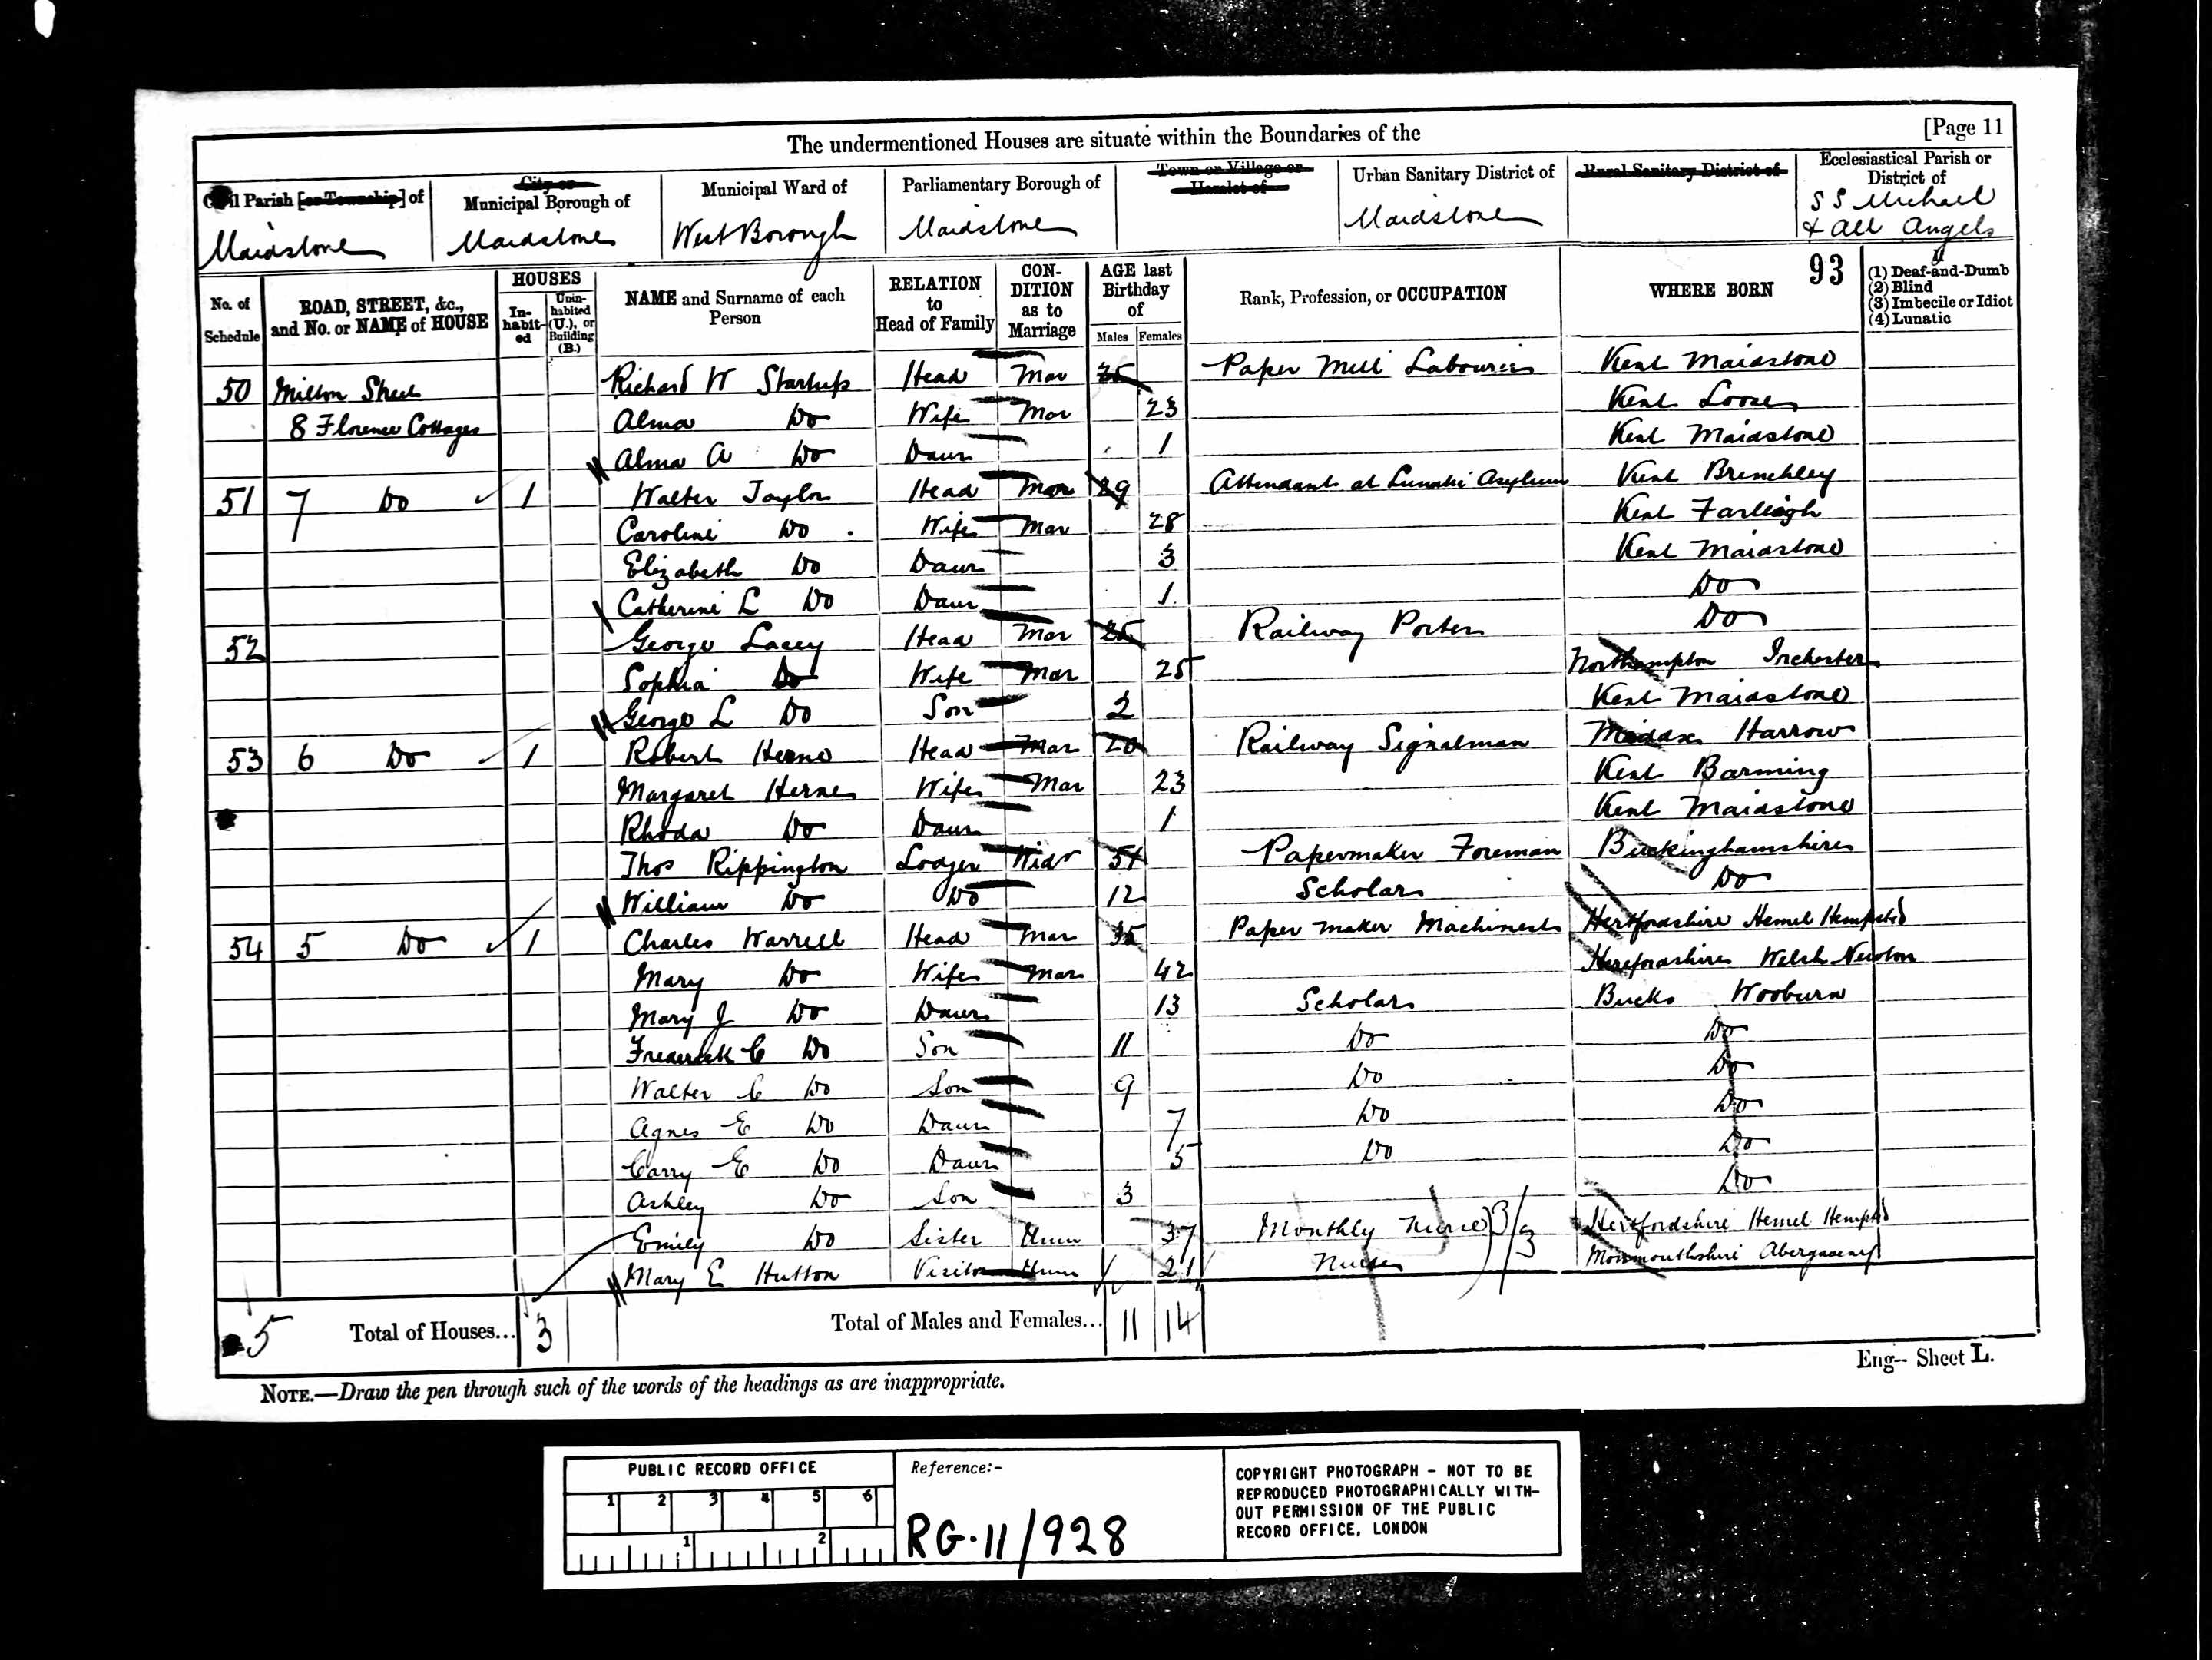 The undermentioned Houses are situate within the Boundaries of the [Page 11
Civil Parish [or Township] of Maidstone
City or Municipal Borough of Maidstone
Municipal Ward of West Borough
Parliamentary Borough of Maidstone
Town or Village or Hamlet of
Urban Sanitary District of Maidstone
Rural Sanitary District of
Ecclesiastical Parish or District of S S Michael & All Angels
93
No. of Schedule
ROAD, STREET, &c., and No. or NAME of HOUSE
HOUSES
In-habit-ed
Unin-habited (U.), or Building (B.)
NAME and Surname of each Person
RELATION to Head of Family
CON-DITION as to Marriage
AGE last Birthday of
Males Females
Rank, Profession, or OCCUPATION
WHERE BORN
(1) Deaf-and-Dumb
(2) Blind
(3) Imbecile or Idiot
(4) Lunatic
50 Milton Street Richard W Startup Head Mar 35 Paper Mill Labourer Kent Maidstone
8 Florence Cottages Alma Do Wife Mar 23 Kent Loose
Alma A Do Daur 1 Kent Maidstone
51 7 Do 1 Walter Taylor Head Mar 29 Attendant at Lunatic Asylum Kent Brenchley
Caroline Do Wife Mar 28 Kent Farleigh
Elizabeth Do Daur 3 Kent Maidstone
Catherine L Do Daur 1 Do
52 George Lacey Head Mar 25 Railway Porter Do
Sophia Do Wife Mar 25 Northampton Irchester
George L Do Son 2 Kent Maidstone
53 6 Do 1 Robert Herne Head Mar Railway Signalman Middx Harrow
Margaret Herne Wife Mar 23 Kent Barming
Rhoda Do Daur 1 Kent Maidstone
Thos Rippington Lodger Widr 51 Papermaker Foreman Buckinghamshire
William Do Do 12 Scholar Do
54 5 Do 1 Charles Warrell Head Mar 35 Paper maker Machinest Hertfordshire Hemel Hempsted
Mary Do Wife Mar 42 Herefordshire Welsh Newton
Mary J Do Daur 13 Scholar Bucks Wooburn
Frederick C Do Son 11 Do Do
Walter C Do Son 9 Do Do
Agnes E Do Daur 7 Do Do
Carry E Do Daur 5 Do Do
Ashley Do Son 3 Do
Emily Do Sister Unm 37 Monthly Nurse Hertfordshire Hemel Hempsd
Mary E Hutton Visitor Unm 21 Nurse Monmouthshire Abergaveny
3/3
5 Total of Houses... 3 Total of Males and Females... 11 14
Eng— Sheet L.
NOTE.—Draw the pen through such of the words of the headings as are inappropriate.
PUBLIC RECORD OFFICE
1 2 3 4 5 6
1 2
Reference:-
RG·11/928
COPYRIGHT PHOTOGRAPH - NOT TO BE
REPRODUCED PHOTOGRAPHICALLY WITH-
OUT PERMISSION OF THE PUBLIC
RECORD OFFICE, LONDON